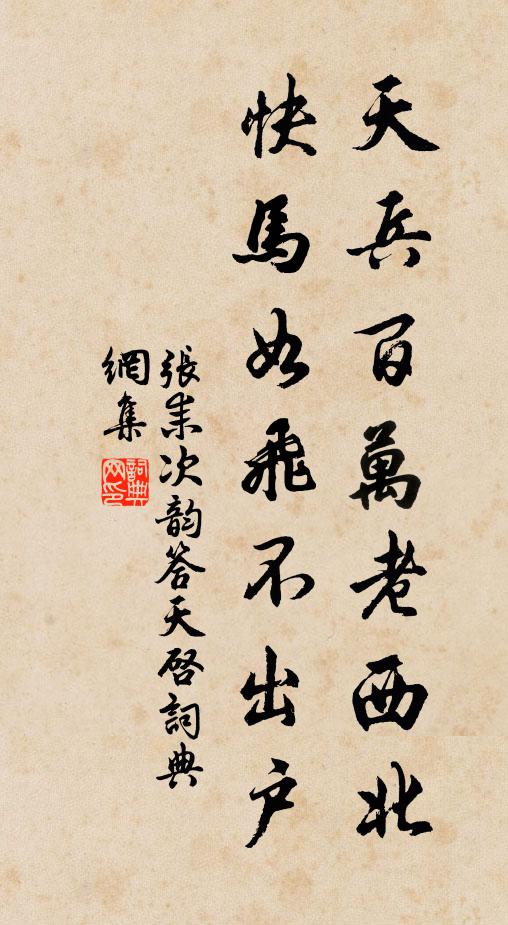 天兵百萬老西北
快馬如飛不出戶
張耒次韵答天啓詞典
網集
詞典網印